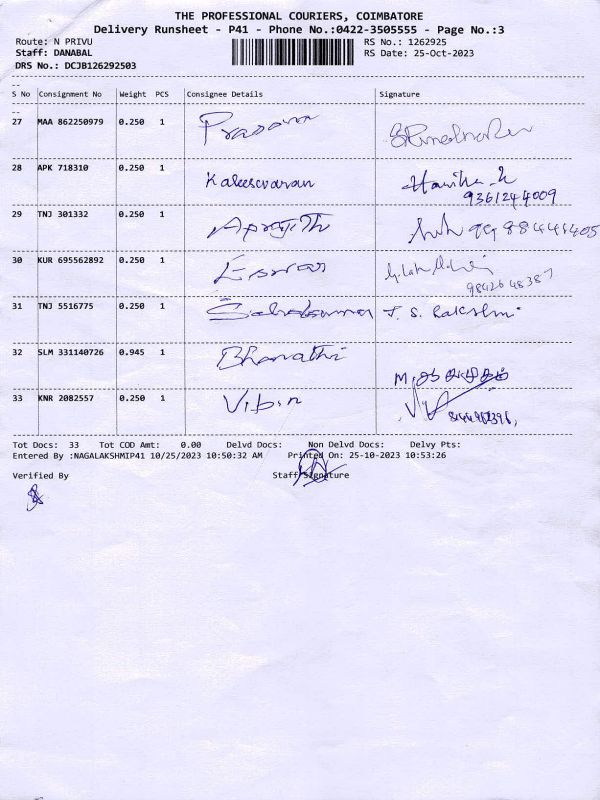 THE PROFESSIONAL COURIERS, COIMBATORE
Delivery Runsheet - P41 - Phone No.:0422-3505555 - Page No.:3
Route: N PRIVU RS No.: 1262925
Staff: DANABAL RS Date: 25-Oct-2023
DRS No.: DCJB126292503
S No Consignment No Weight PCS Consignee Details Signature
27 MAA 862250979 0.250 1 Prasanna
28 APK 718310 0.250 1 Kaleesvaran
9361244009
29 TNJ 301332 0.250 1
30 KUR 695562892 0.250 1 Eswar
31 TNJ 5516775 0.250 1 J. S. Rakshmi
32 SLM 331140726 0.945 1 Bharathi
33 KNR 2082557 0.250 1 Vibin
Tot Docs: 33 Tot COD Amt: 0.00 Delvd Docs: Non Delvd Docs: Delvy Pts:
Entered By :NAGALAKSHMIP41 10/25/2023 10:50:32 AM Printed On: 25-10-2023 10:53:26
Verified By Staff Signature